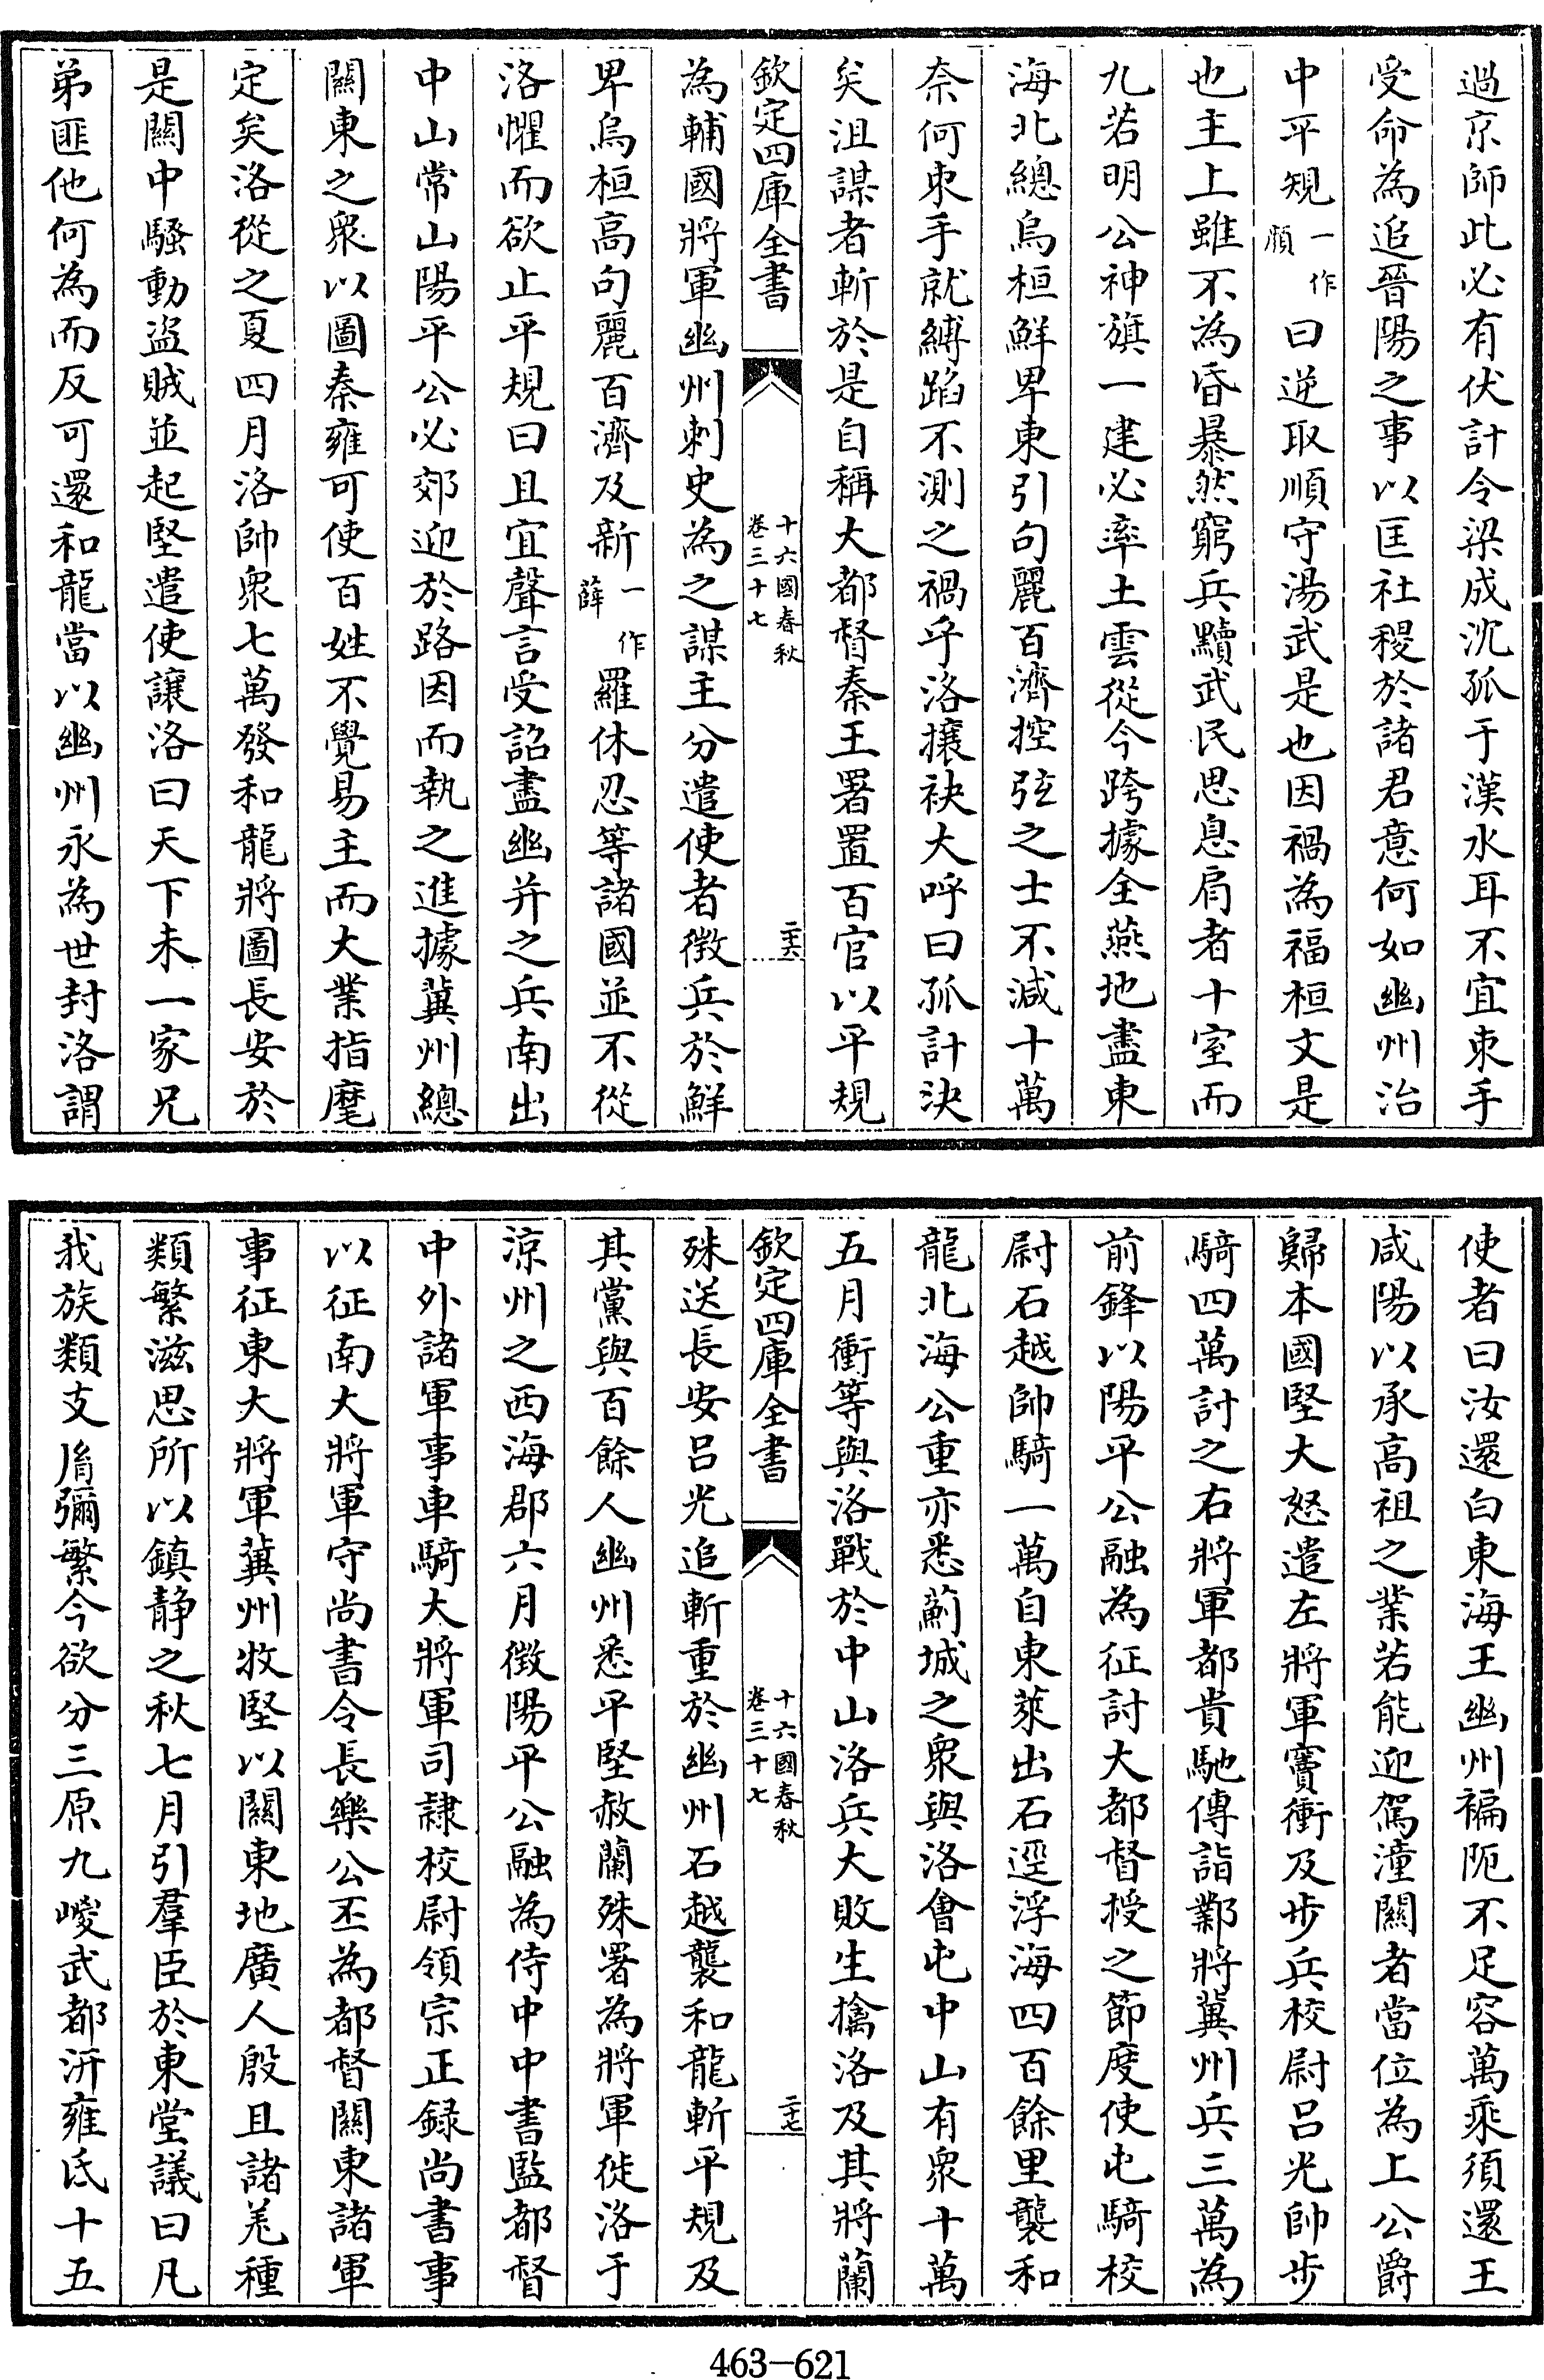 過京師此必有伏計令梁成沈孤于漢水耳不宜束手
受命為追晉陽之事以匡社稷於諸君意何如幽州治
中平規一作顏曰逆取順守湯武是也因禍為福桓文是
也主上雖不為昏暴然窮兵黷武民思息肩者十室而
九若明公神旗一建必率土雲從今跨據全燕地盡東
海北總烏桓鮮卑東引句麗百濟控弦之士不減十萬
奈何束手就縛蹈不測之禍乎洛攘袂大呼曰孤計決
矣沮謀者斬於是自稱大都督秦王署置百官以平規
欽定四庫全書
十六國春秋
卷三十七
二十六
為輔國將軍幽州刺史為之謀主分遣使者徵兵於鮮
卑烏桓高句麗百濟及新一作薛羅休忍等諸國並不從
洛懼而欲止平規曰且宜聲言受詔盡幽并之兵南出
中山常山陽平公必郊迎於路因而執之進據冀州總
關東之衆以圖秦雍可使百姓不覺易主而大業指麾
定矣洛從之夏四月洛帥衆七萬發和龍將圖長安於
是關中騷動盜賊並起堅遣使讓洛曰天下未一家兄
弟匪他何為而反可還和龍當以幽州永為世封洛謂
使者曰汝還白東海王幽州褊阨不足容萬乘須還王
咸陽以承高祖之業若能迎駕潼關者當位為上公爵
歸本國堅大怒遣左將軍竇衝及步兵校尉呂光帥步
騎四萬討之右將軍都貴馳傳詣鄴將冀州兵三萬為
前鋒以陽平公融為征討大都督授之節度使屯騎校
尉石越帥騎一萬自東萊出石逕浮海四百餘里襲和
龍北海公重亦悉薊城之衆與洛會屯中山有衆十萬
五月衝等與洛戰於中山洛兵大敗生擒洛及其將蘭
欽定四庫全書
十六國春秋
卷三十七
二十七
殊送長安呂光追斬重於幽州石越襲和龍斬平規及
其黨與百餘人幽州悉平堅赦蘭殊署為將軍徙洛于
涼州之西海郡六月徵陽平公融為侍中中書監都督
中外諸軍事車騎大將軍司隷校尉領宗正録尚書事
以征南大將軍守尚書令長樂公丕為都督關東諸軍
事征東大將軍冀州牧堅以關東地廣人殷且諸羌種
類繁滋思所以鎮静之秋七月引羣臣於東堂議曰凡
我族類支𦙍彌繁今欲分三原九嵕武都汧雍氐十五
463-621